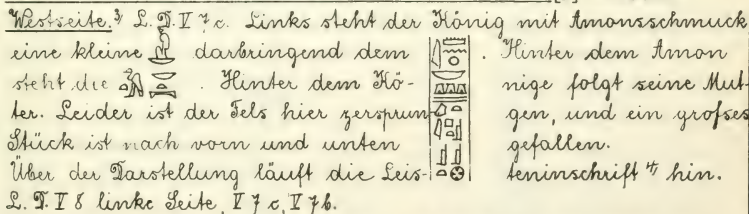 Westseite.³⁾ L. D. V 7 c. Links steht der König mit Amonsschmuck
eine kleine darbringend dem . Hinter dem Amon
steht die . Hinter dem Kö- nige folgt seine Mut-
ter. Leider ist der Fels hier zersprun- gen, und ein grofses
Stück ist nach vorn und unten gefallen.
Über der Darstellung läuft die Leis- teninschrift ⁴⁾ hin.
L. D. V 8 linke Seite, V 7 c, V 7 b.